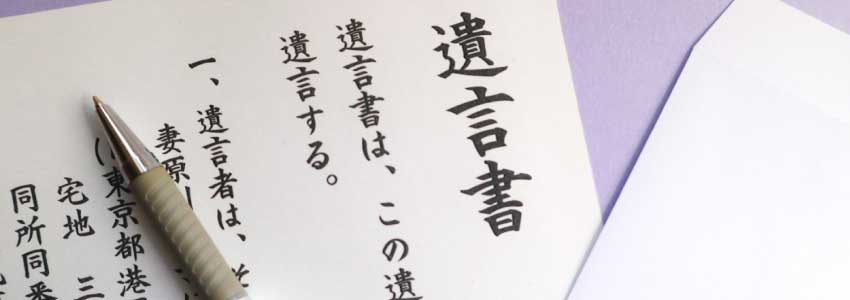 遺言書
遺言書は、この遺
遺言する。
一、遺言者は、そ
妻原
(東京都港
宅地 三
同所同番